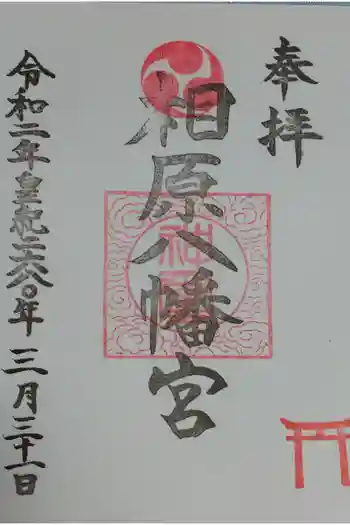 奉拝
相原八幡宮
令和二年皇紀二六八〇年三月三十一日